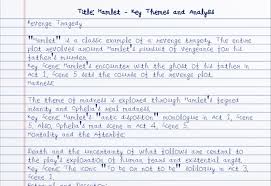 Title: Hamlet - Key Themes and Analysis
Revenge Tragedy
"Hamlet" is a classic example of a revenge tragedy. The entire
plot revolves around Hamlet's pursuit of vengeance for his
father's murder.
Key Scene: Hamlet's encounter with the ghost of his father in
Act 1, Scene 5, sets the course of the revenge plot.
Madness:
The theme of madness is explored through Hamlet's feigned
insanity and Ophelia's real madness.
Key Scene: Hamlet's "antic disposition" monologue in Act 1, Scene
5. Also, Ophelia's mad scene in Act 4, Scene 5.
Mortality and the Afterlife:
Death and the uncertainty of what follows are central to
the play's exploration of human fears and existential angst.
Key Scene: The iconic "To be or not to be" soliloquy in Act 3,
Scene 1.